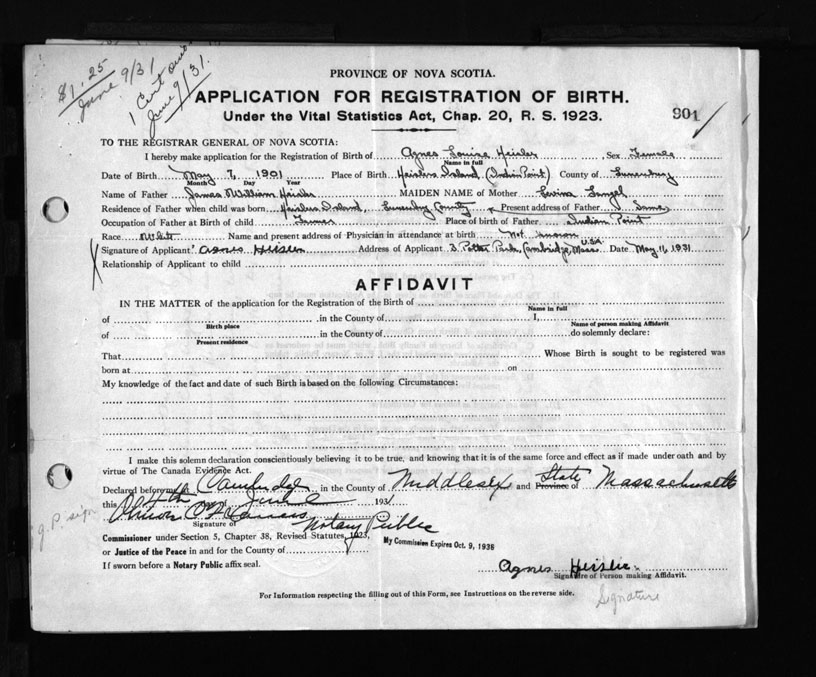 $1.25
June 9/31
1 Cert
June 9/31.
PROVINCE OF NOVA SCOTIA.
APPLICATION FOR REGISTRATION OF BIRTH.
Under the Vital Statistics Act, Chap. 20, R. S. 1923.
901
TO THE REGISTRAR GENERAL OF NOVA SCOTIA:
I hereby make application for the Registration of Birth of Agnes Louise Heisler, Sex Female
Name in full
Date of Birth May 7, 1901 Place of Birth Heislers Island (Indian Point) County of Lunenburg
Month Day Year
Name of Father James William Heisler MAIDEN NAME of Mother Levina Langel
Residence of Father when child was born Heislers Island, Lunenburg County Present address of Father Same
Occupation of Father at Birth of child Place of birth of Father Indian Point
Race White Name and present address of Physician in attendance at birth Not known
Signature of Applicant Agnes Heisler Address of Applicant 3 Potter Park, Cambridge, Mass U.S.A. Date May 16, 1931
Relationship of Applicant to child
AFFIDAVIT
IN THE MATTER of the application for the Registration of the Birth of
Name in full
of , in the County of I,
Birth place Name of person making Affidavit
of in the County of do solemnly declare:
Present residence
That Whose Birth is sought to be registered was
born at on
My knowledge of the fact and date of such Birth is based on the following Circumstances:
I make this solemn declaration conscientiously believing it to be true, and knowing that it is of the same force and effect as if made under oath and by
virtue of The Canada Evidence Act.
Declared before me Cambridge, in the County of Middlesex and Province State of Massachusetts
this June 1931
Signature of
Notary Public
Commissioner under Section 5, Chapter 38, Revised Statutes, 1923,
My Commission Expires Oct. 9, 1936
or Justice of the Peace in and for the County of
If sworn before a Notary Public affix seal.
Agnes Heisler
Signature of Person making Affidavit.
J.P sign
Signature
For Information respecting the filling out of this Form, see Instructions on the reverse side.